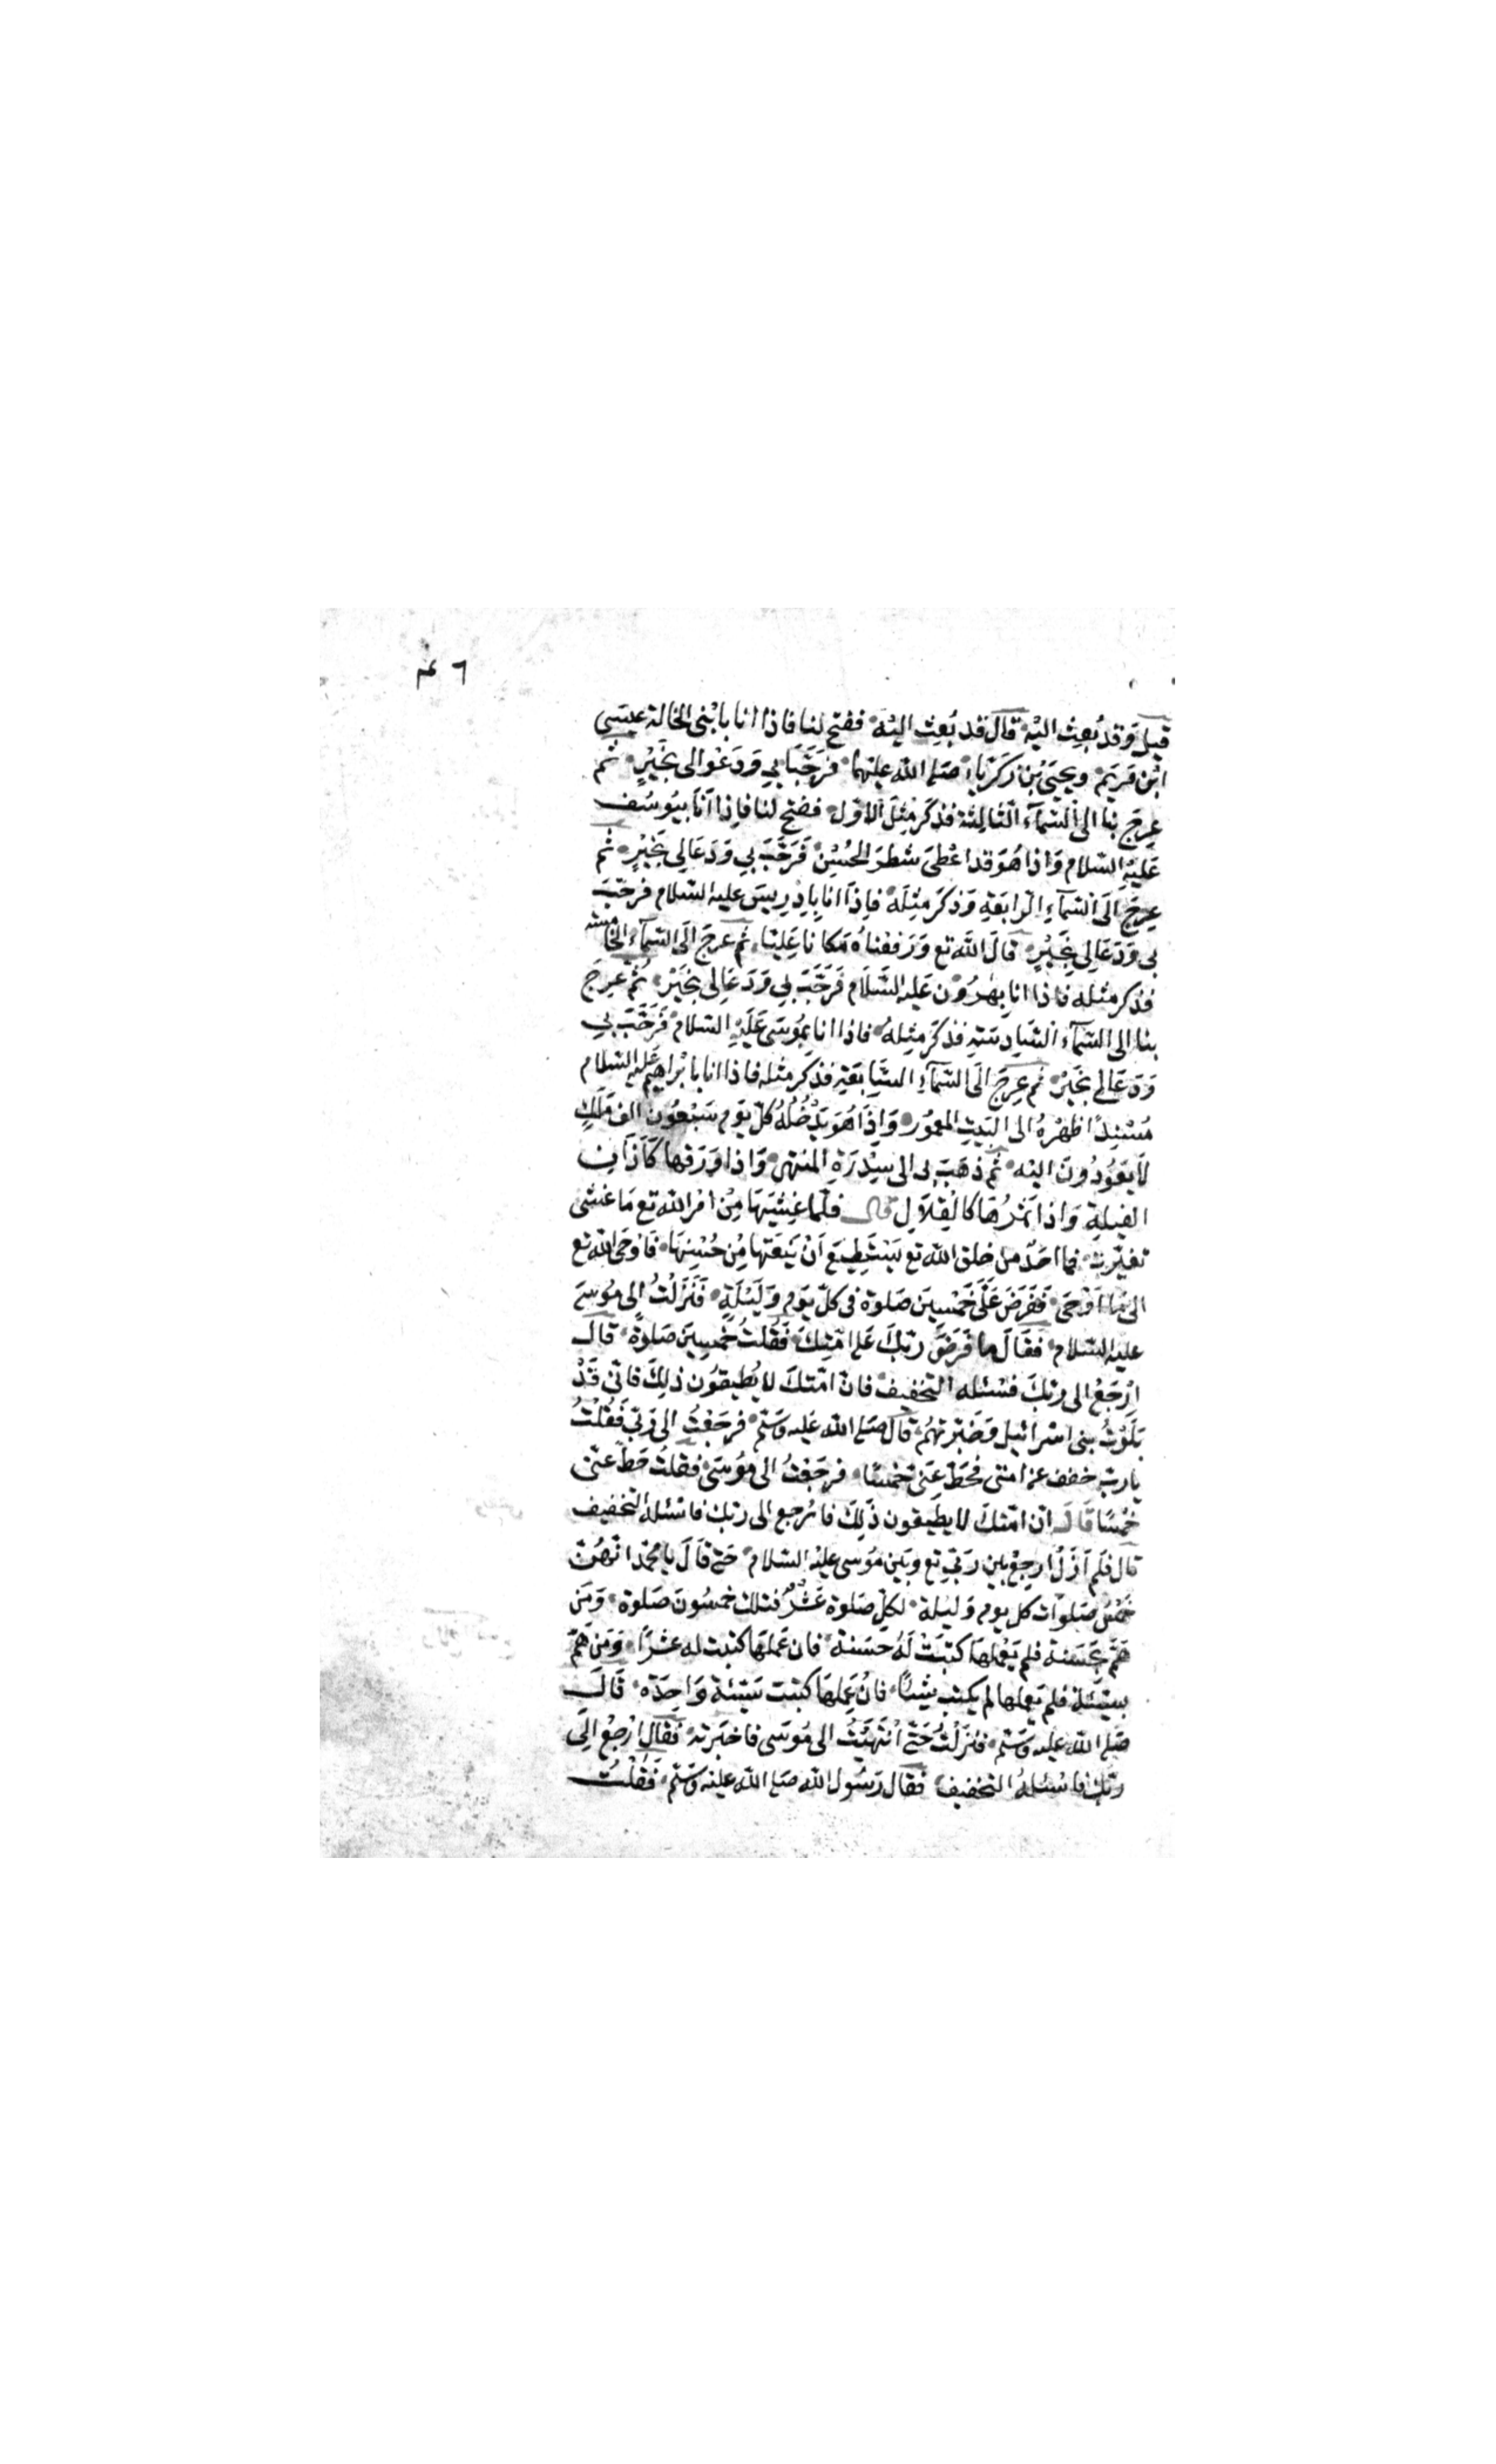 ٦
قيل وقد بُعِث اليْه قالَ قد بُعِث اليْه ففتح لنا فاذا انا بابْنى الخالة عيسى
ابْن مَريَم ويحيَى بْن زكريّاء صَلى الله عليهما فرَحَّبَا بى وَدَعَوا لى بخَيْرٍ ثم
عرجَ بنا الى السّمآء الثالِثة فذكرَ مثلَ الاوّل ففتح لنا فاِذا اَنَا بيُوسُف
عَليْهِ السّلام وَاذا هُوَ قد اعْطىَ شطرَ الحُسْن فَرَحَّبَ بي وَدَعَا لِى بخَيْرٍ ثم
عرجَ اِلى السّمآءِ الرّابعَةِ وَذكرَ مثِلَه فاِذا انا بادِريسَ عليه السّلام فرحّبَ
بى وَدَعَا لِى بخَيْرٍ قالَ الله تع وَرَفعْناهُ مَكانا عَليّا ثم عرجَ الَى السّمآء الخامسة
فذكر مثله فاذا انا بهرُوْن عَليه السَّلَام فَرَحَّبَ بِي وَدَعَا لى بخَيْر ثُمّ عرجَ
بنا الى السّمآء السّادِسَةِ فذكرَ مثِلهُ فاذا انا بموُسَى عَلَيْهِ السلام فَرَحَّبَ بي
وَدَعَا لى بخَيْر ثم عرجَ الَى السّمآءِ السّابعَةِ فذكرَ مثله فاذا انا بابْراهيم عليه السّلام
مُسْنِدًا ظهْرَهُ الى البَيتِ المعمُور وَاِذا هُوَ يَدْخُلُهُ كلّ يَوم سَبْعُون الف مَلَكٍ
لَا يَعُوُدُونَ اليْه ثم ذهَبَ بى الى سِدْرَةِ المنتهى وَاذا وَرَقها كَآذان
الفيلةِ وَاذا ثمرُهَا كالقِلَال قال فلمّا غشِيَهَا مِنْ امْر الله تع مَا غشى
تغيّرت فما احَدٌ من خلق الله تع يَسْتَطِيع اَنْ يَنْعَتها مِن حُسْنِهَا فَاوْحَى الله تع
الىّ مَا اَوْحَى فَفَرَضَ عَلَىّ خَمْسِينَ صَلوة فى كلّ يَوم وَلَيْلَةٍ فَنَزَلْتُ الى مُوسَى
عليه السّلام فَقَالَ ما فَرَضَ رَبّكَ عَلى امّتِكَ فَقُلتُ خَمسِينَ صَلوةً قال
ارْجَعْ الى رَبّكَ فسْئله التخفيف فانّ امّتكَ لا يُطيقوُن ذلِكَ فانّى قَدْ
بَلَوْتُ بنى اسْرائيل وَخَبَرتهُم قالَ صَلى الله عَليه وسَلم فرجَعْتُ الى رَبّى فَقُلْتُ
يا ربّ خفف عن امتى فحَطّ عَنّى خَمْسًا فرجَعْتُ الى مُوسَى فقلتُ حَطّ عنّى
خمْسًا قَالَ انّ امّتكَ لا يطيقون ذَلِكَ فارْجع الى ربّكَ فاسْئله التخفيف
قال فلم اَزَلْ ارجِعْ بين ربّى تع وبَين مُوسى عليه السلام حَتّى قالَ يا محمّد انّهُنّ
خَمْسُ صَلَوات كلّ يوم وَليْلة لكلّ صَلوة عَشْرٌ فتلك خمسُونَ صَلوة وَمَن
هَمّ بحَسَنة فلم يَعْملهَا كتبَتْ لَهُ حَسَنة فان عَملهَا كتبت له عشرًا وَمَن همّ
بسيّئة فلم يَعملها لم يكتب شيئًا فانْ عَمِلهَا كتبت سَيّئة وَاحِدَة قَالَ
صَلى الله عليه وسَلم فنزَلْتُ حَتّى انْتهَيْتُ الى مُوسَى فاخبَرته فقالَ ارْجع الَى
ربّكَ فاسْئلهُ التخفيف فقال رَسُول الله صَلى الله عليْه وسَلم فَقُلْت